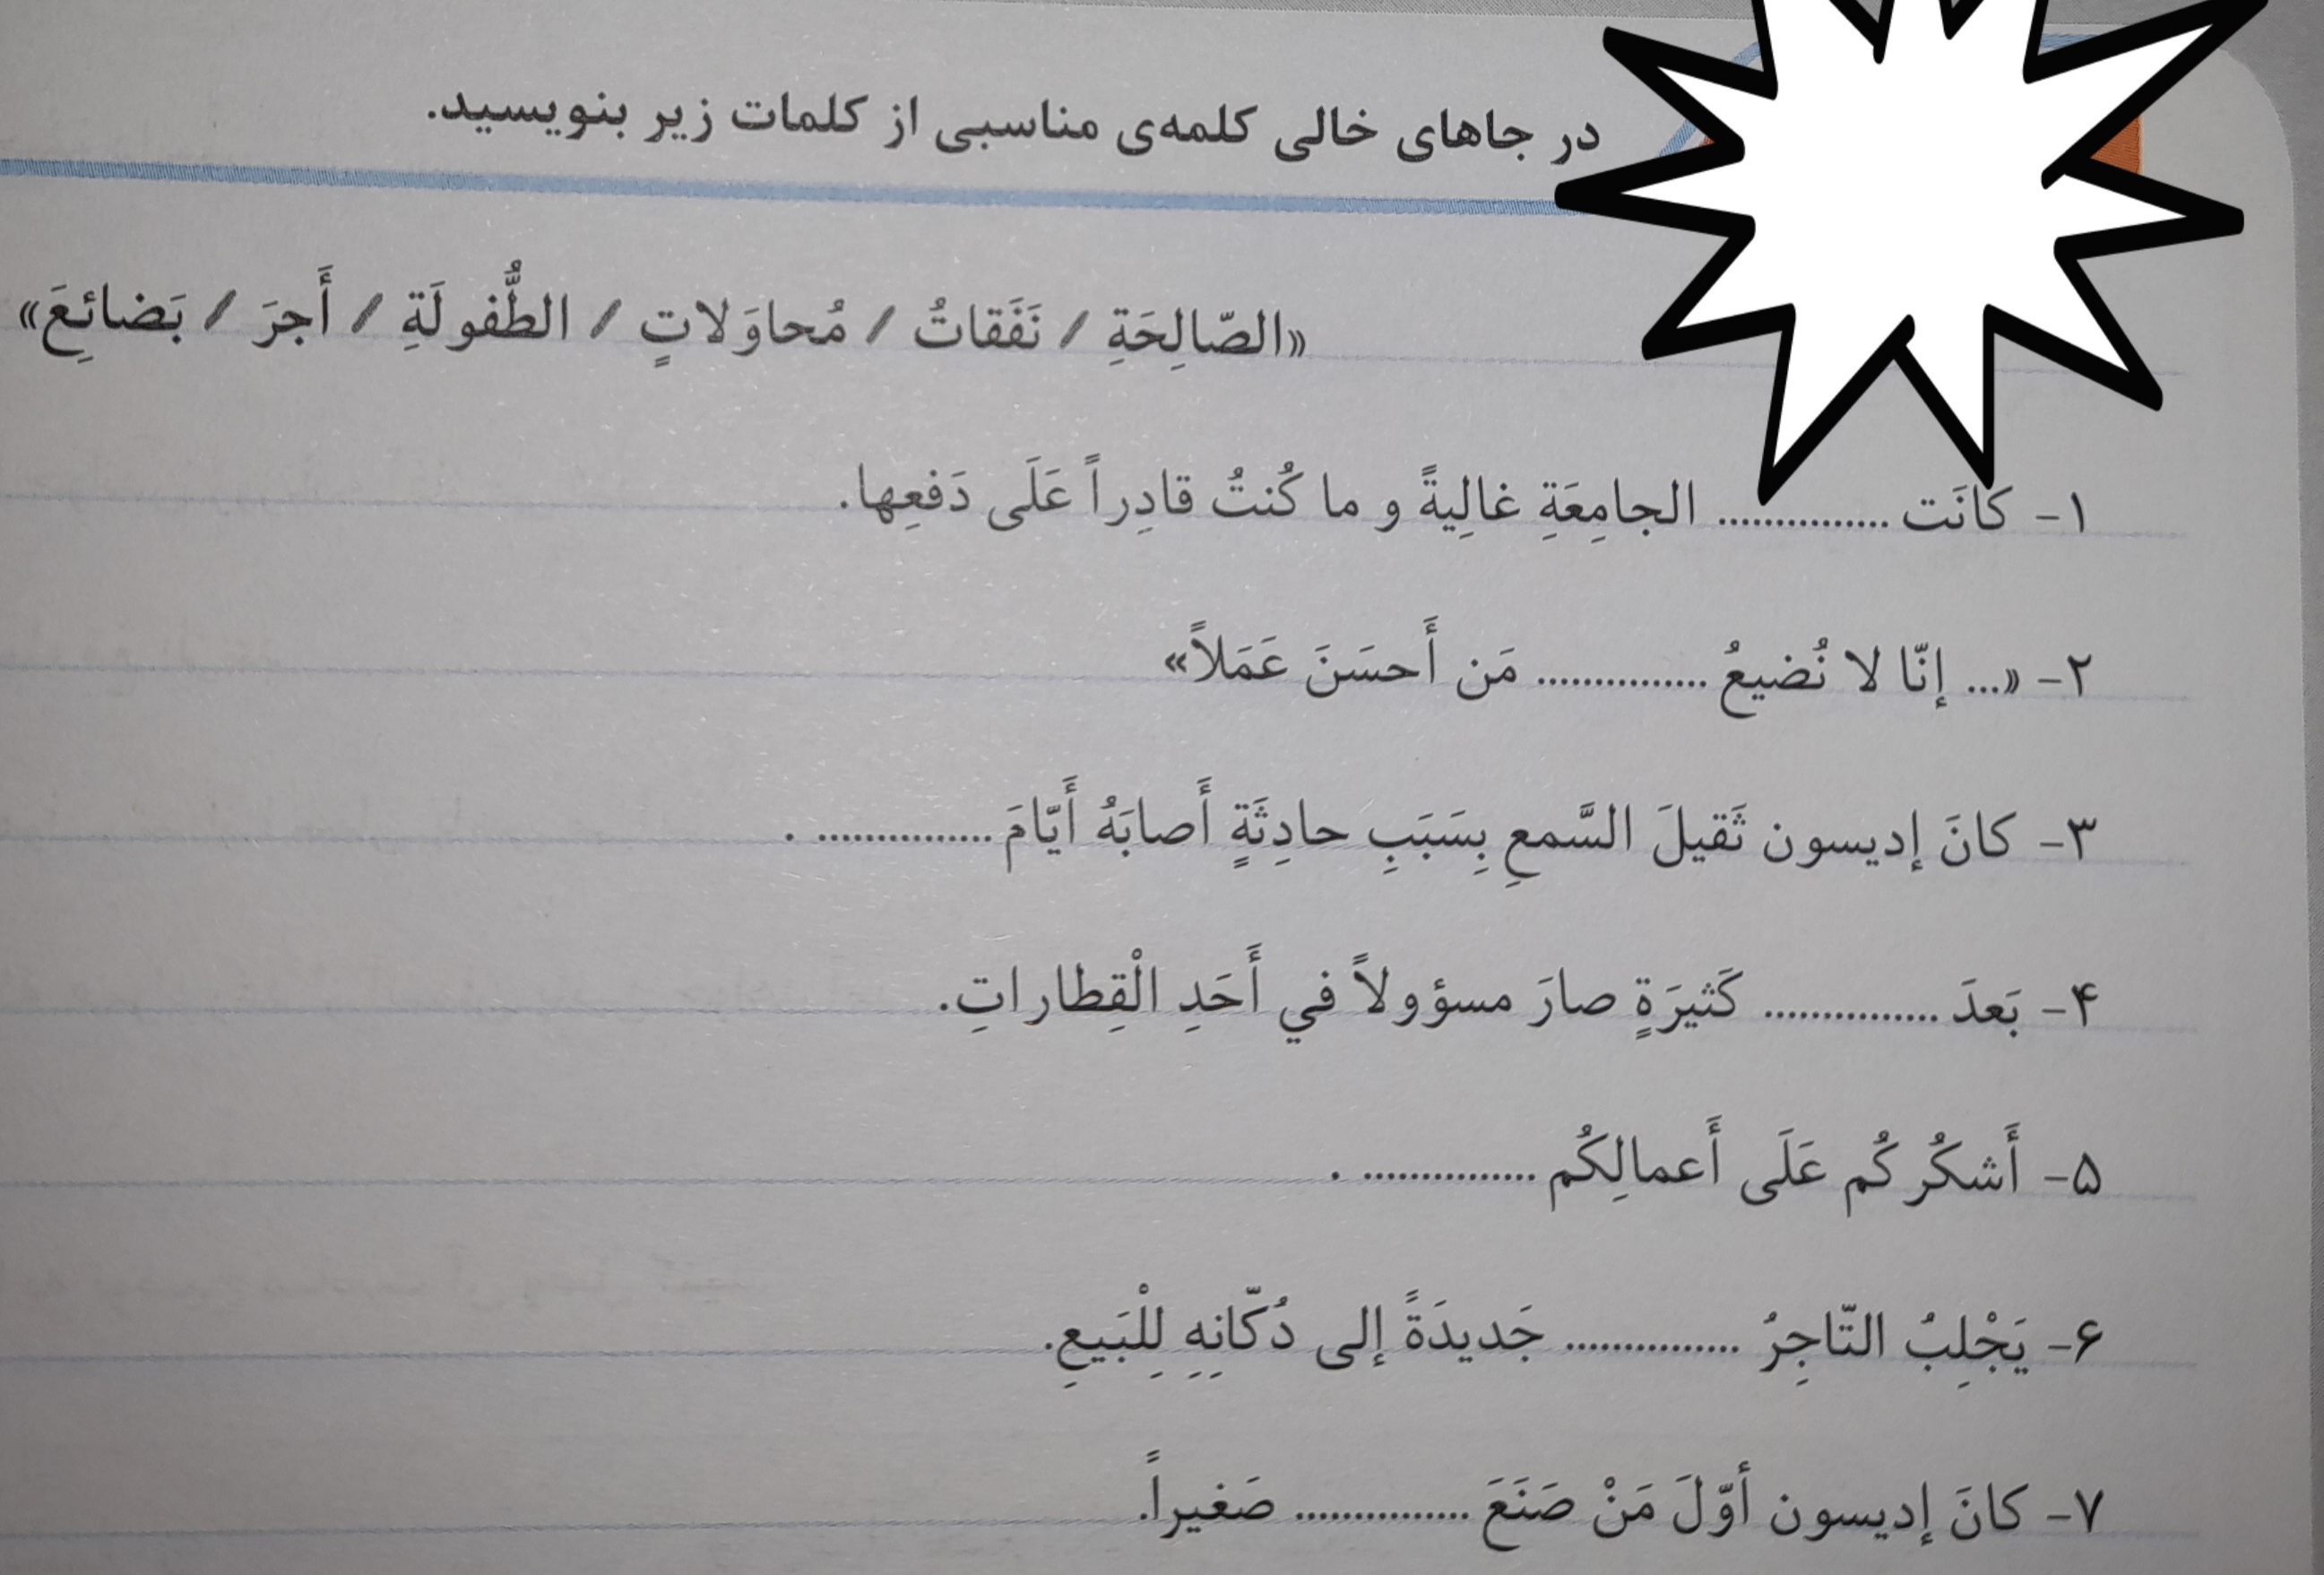 در جاهای خالی کلمه‌ی مناسبی از کلمات زیر بنویسید.
«الصّالِحَةِ / نَفَقاتُ / مُحاوَلاتٍ / الطُّفولَةِ / أَجرَ / بَضائِعَ»
۱- کانَت ............... الجامِعَةِ غالِیةً و ما کُنتُ قادِراً عَلَی دَفعِها.
۲- «... إنّا لا نُضیعُ ............... مَن أَحسَنَ عَمَلاً»
۳- کانَ إدیسون ثَقیلَ السَّمعِ بِسَبَبِ حادِثَةٍ أَصابَهُ أَیّامَ ............... .
۴- بَعدَ ............... کَثیرَةٍ صارَ مسؤولاً في أَحَدِ الْقِطاراتِ.
۵- أَشکُرُکُم عَلَی أَعمالِکُم ............... .
۶- یَجْلِبُ التّاجِرُ ............... جَدیدَةً إلی دُکّانِهِ لِلْبَیعِ.
۷- کانَ إدیسون أوّلَ مَنْ صَنَعَ ............... صَغیراً.